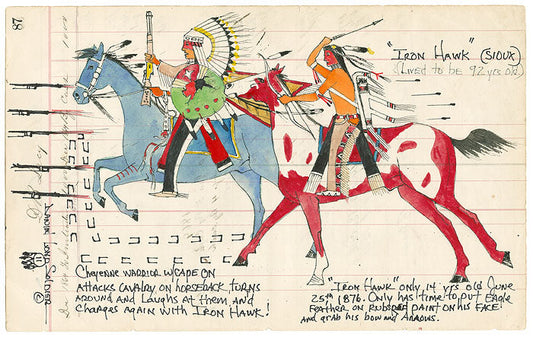 87
"IRON HAWK" (SIOUX)
(Lived to be 92 yrs old)
CHEYENNE WARRIOR W CAPE ON
ATTACKS CAVALRY ON HORSEBACK TURNS
AROUND AND LAUGHS AT THEM AND
CHARGES AGAIN WITH IRON HAWK!
"IRON HAWK" ONLY 14 YRS OLD JUNE
25th 1876. ONLY HAS TIME TO PUT EAGLE
FEATHER ON RUBS RED PAINT ON HIS FACE
AND GRAB HIS BOW AND ARROWS.